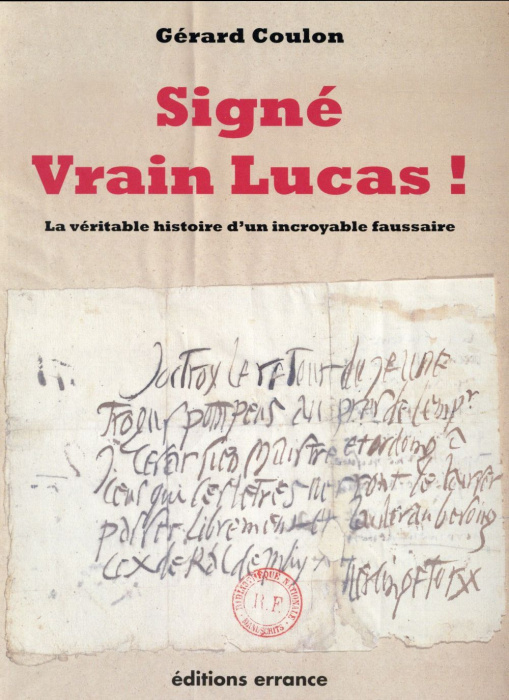 Gérard Coulon
Signé
Vrain Lucas !
La véritable histoire d'un incroyable faussaire
Joctroy le retour du jeune
Trogus pompeus au pres de lempr
J Cesar sien Maistre et
ceux qui ces letres le
passer librement et au besoing
ce x de Kal de
BIBLIOTHÈQUE NATIONALE
R.F.
MANUSCRITS
éditions errance